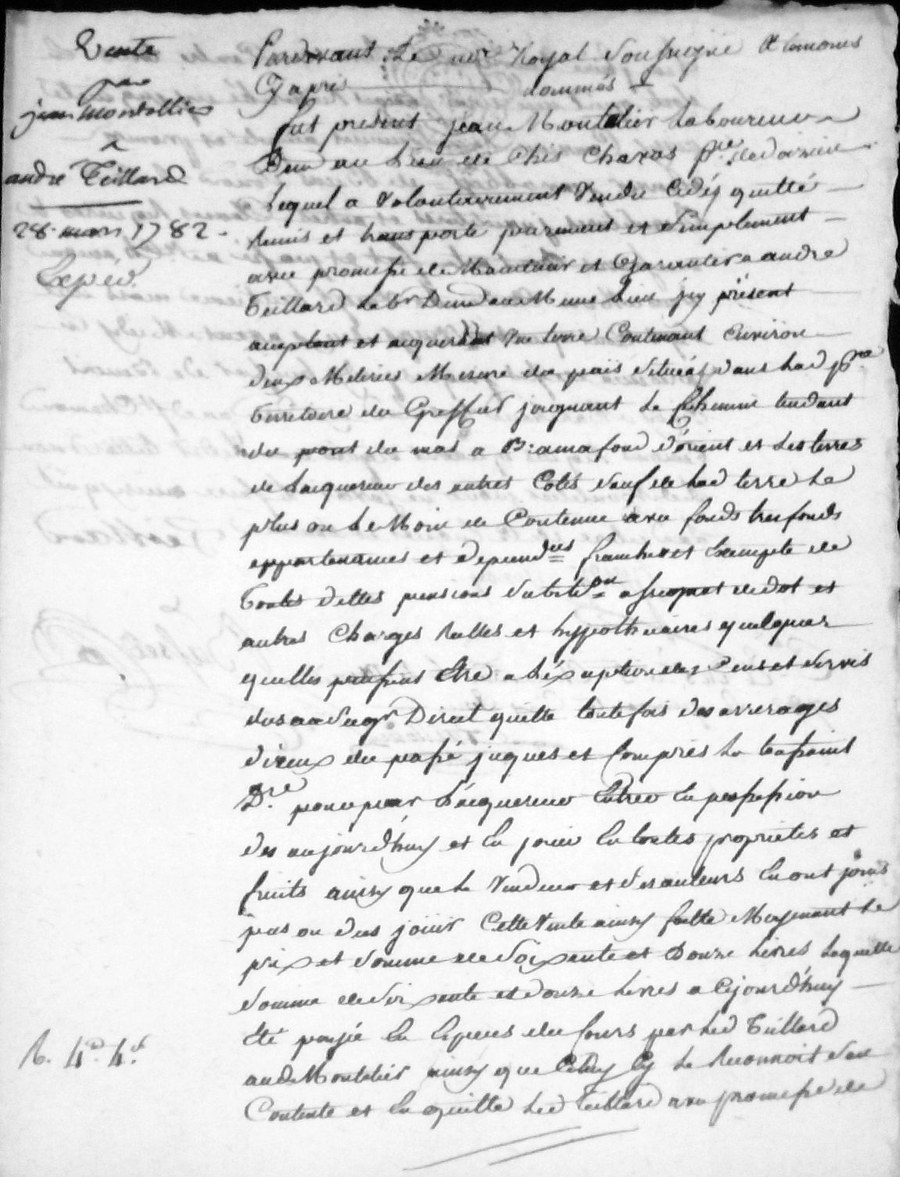 Vente
par
jean Montellier
a
andré Teillard
28 mars 1782
Expéd.
Pardevant Le nore Royal Soussigné et temoins
Cy apres nommés
fut présent jean Montelier Laboureur
Dem au Lieu de Chés Charas psse de
Lequel a Volontairement Vendu Cedé quitté
Remis et transporté purement et Simplement
avec promesse de Maintenir et Garantir a andré
Teillard Labr Dem au Meme Lieu jcy présent
acceptant et acquerant Une terre Contenant Environ
deux Meterées Mesure du païs Située dans Lad psse
territoire du joignant Le Chemin tendant
du pont du mas a Bramafond d'orient et Les terres
de Lacquereur des autres Cotés Sauf de Lad terre Le
plus ou Le Moin de Contenue avec fonds tresfonds
appartenances et dependces franche et Exempte de
toutes dettes pensions Substiton assignat de dot et
autres Charges Réelles et hypothécaires quelques
quelles puissent Etre a L'éxception des Cens et Servis
dus au Seigr Direct quitte toutefois des arrerages
d'iceux du passé jusques et Compris La toussaint
Dre pour par L'acquereur Entrer En possession
Des aujourd'huy et En jouir En toutes proprietés et
fruits ainsy que Le Vendeur et Ses auteurs En ont jouis
pus ou dus jouir Cette Vente ainsy faitte Moyenant Le
prix et Somme de Soixante et Douze Livres Laquelle
Somme de Soixante et douze Livres a Cejourd'huy
Eté payée En Espèces du Cours par Led Teillard
aud Montelier ainsy que Celuy Cy Le Reconnoit S'en
Contente et En quitte Led Teillard avec promesse de
R. 4d. 4d.